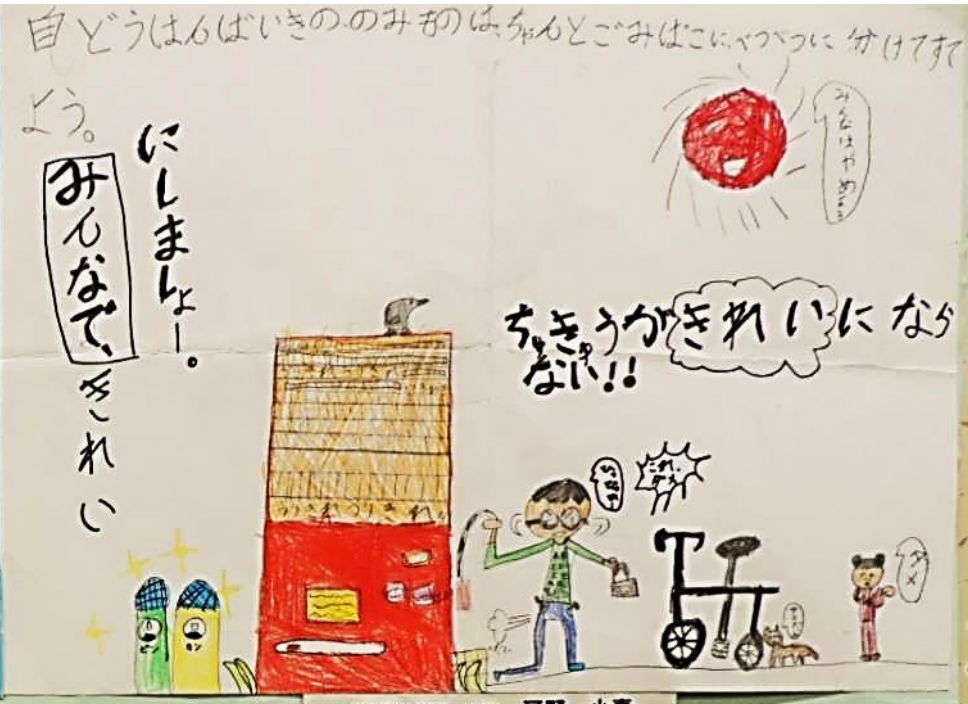 自どうはんばいきののみものは、ちゃんとごみばこに、べつべつに分けてすて
よう。
みんなで、きれい
にしましょー。
みんなはやめよう
ちきゅうがきれいになら
ない!!
うりきれうりきれ
これ、
ダメ
ダメ
ビン
カン